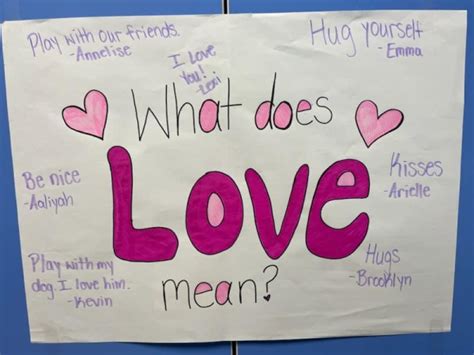 Play with our friends.
-Annelise
I love
You!
-Lexi
Hug yourself
-Emma
What does
Love
mean?
Be nice
-Aaliyah
Kisses
-Arielle
Play with my
dog. I love him.
-Kevin
Hugs
-Brooklyn